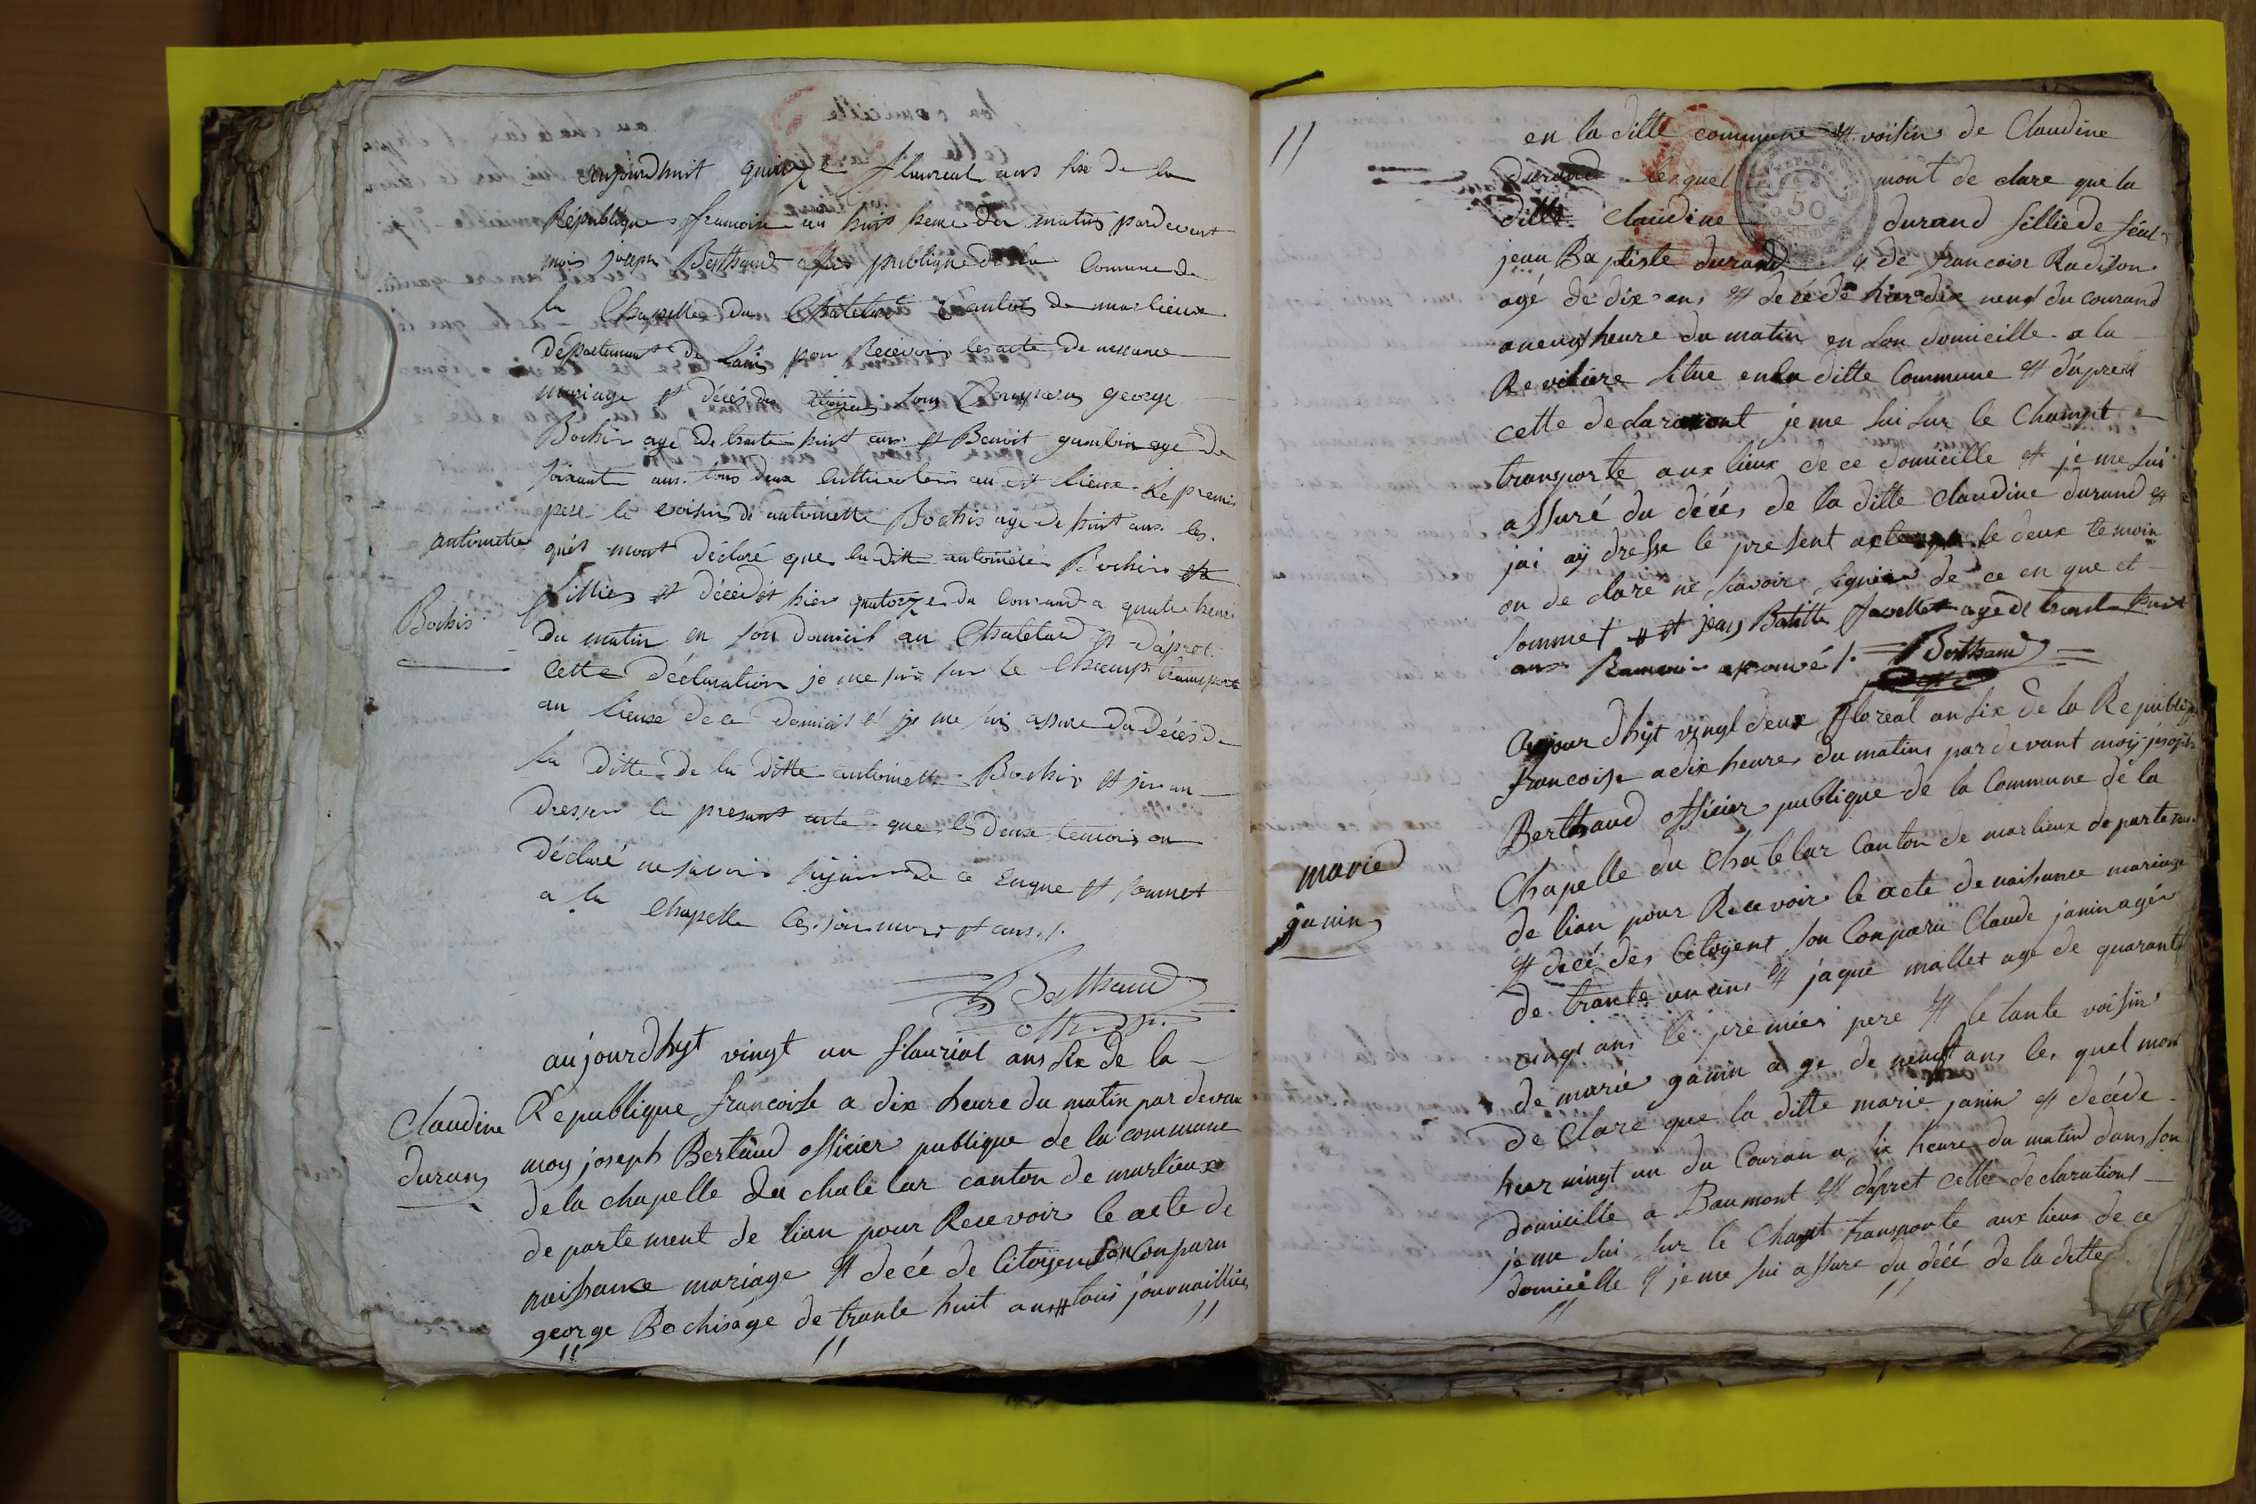 aujourdhuit quinze flaureal ans six de la
République francoise a huit heure du matin pardevant
moi joseph Berthaud publique de la Comune de
la Chapelle du Chatelard Canton de marlieux
departement de Lain pour Recevoir les acte de nessance
mariage et décès des sons Comparus george
Bochis agé de trante huit ans et Benoit gambin age de
soixante ans tous deux Cultivateur au dit lieux le premier
pere le voisin de antoinette Bochis age de huit ans les
antoinette
quels mont déclaré que la ditte antoinette Bochis sa
Bochis
fillies et décédét hier quatorze du Courand a quatre heure
du matin en son domicil au Chatelard et d'apret
Cette déclaration je me suis sur le Champ transporte
au lieux de ce domicil et je me suis assure du décès de
la ditte de la ditte antoinette Bochis et jen an
dresser le present acte que les deux temoins on
déclaré ne savoir signer de ce Enque et sommet
a la Chapelle Ces jour mois et ans ./.
Berthaud
aujourdhyt vingt un flauriat ans six de la
Claudine
Republique francoise a dix heure du matin par devan
duran
moy joseph Bertaud officier publique de la commune
de la chapelle du chatelar canton de marlieux
departement de lian pour Recevoir le acte de
naissance mariage et décé de Citoyen son Conparu
george Bochis age de trante huit ans et louis journaillier
// // //
//
en la ditte commune et voisin de Claudine
durand lesquel mont de clare que la
ditte Claudine durand fillie de feut
jean Baptiste durand et de francoise Radison
agé de dix ans et décédé hier dix neuf du courand
a neuf heure du matin en son domicille a la
Reviliere situe en la ditte Commune et d'apreit
cette declarationt je me sui sur le Champt
transporte aux lieux de ce domicille et je me sui
assuré du décès de la ditte claudine durand et
jai ay dresse le present acte le deux temoin
on de clare ne scavoir signier de ce en que et
sommet et jean Batitte age de trante huit
ans aprouvé ./. Berthaud
Aujourdhyt vingt deux floreal an six de la Republique
francoise a dix heures du matins par devant moy joseph
Berthaud officier publique de la Commune de la
Chapelle du Chatelar Canton de marlieux departemen
marie
de lian pour Recevoir le acte de naissance mariage
janin
et décé des Citoyent son Conparu Claude janin agér
de trante un ans et jaque mallet age de quarante
vingt ans le premier pere et le tante voisin
de marie ganin a ge de neuf ans les quel mon
de clare que la ditte marie janin et décéde
hier vingt un du Couran a six heure du matin dans son
domicille a Baumont et dapret cette declarationt
je me sui sur le Champt transporte aux lieux de ce
domicille et je me sui assure du décé de la ditte
// //